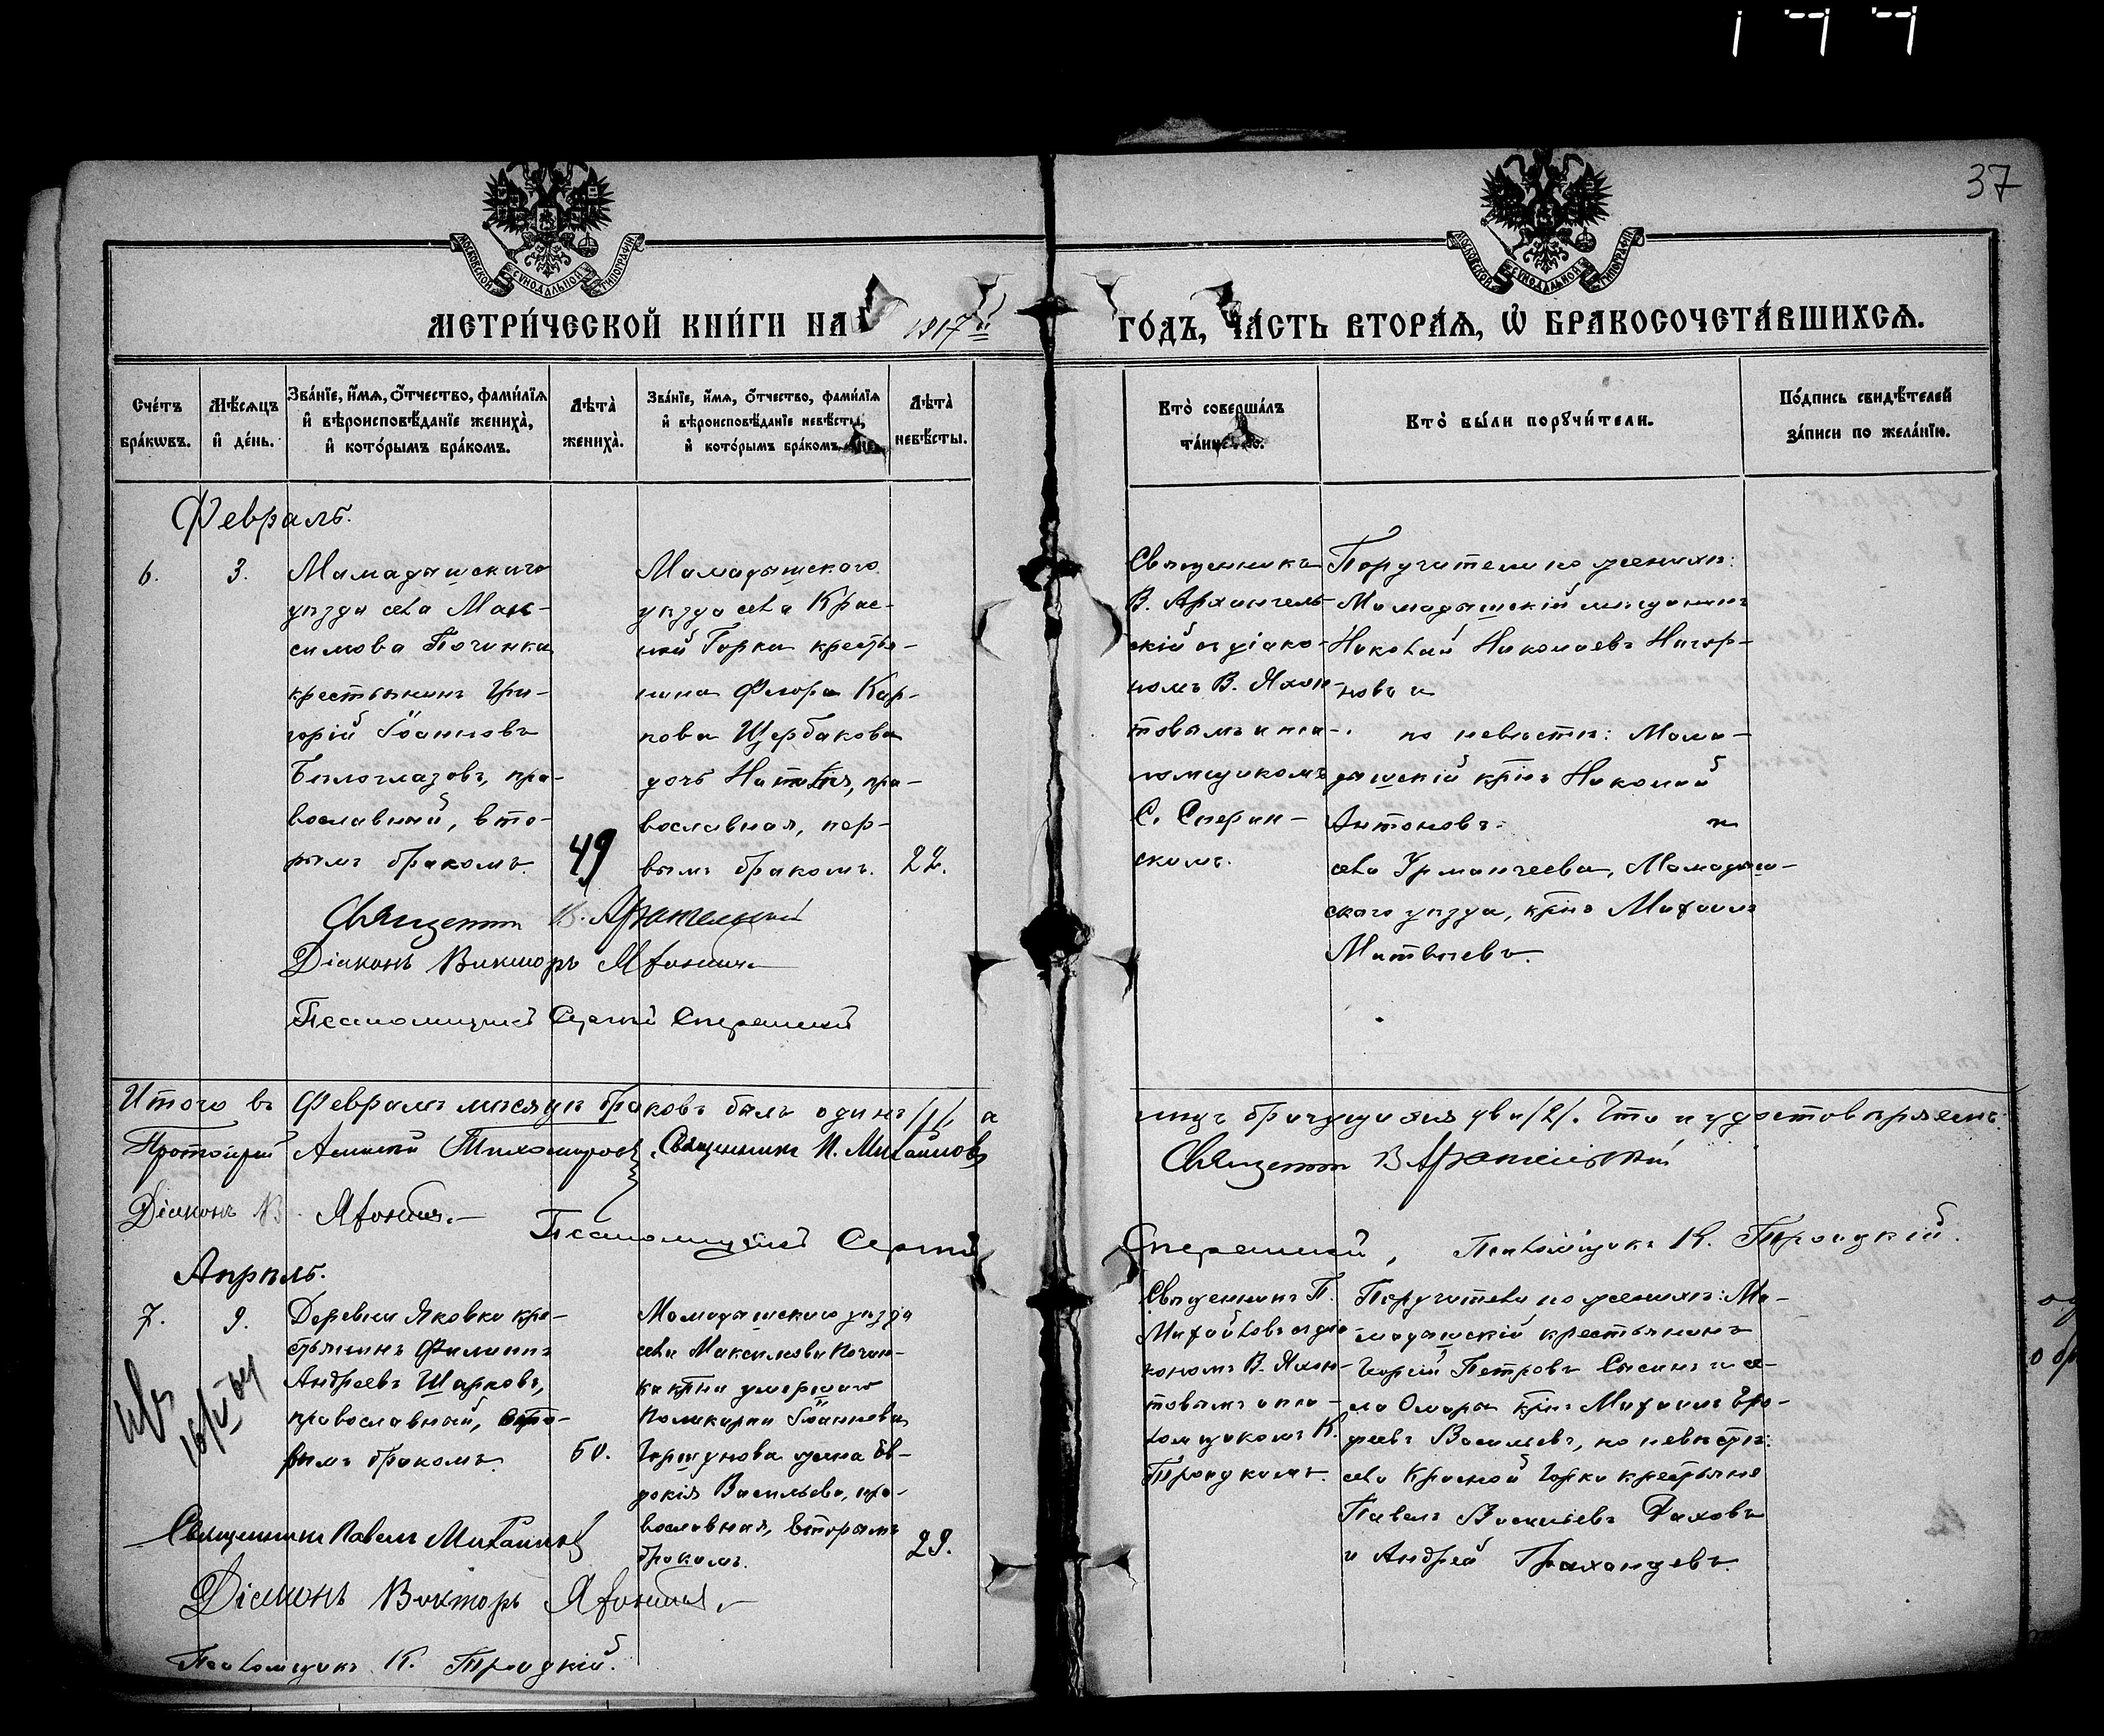 37
МОСКОВСКОЙ СѴНОДАЛЬНОЙ ТИПОГРАФІИ
МОСКОВСКОЙ СѴНОДАЛЬНОЙ ТИПОГРАФІИ
МЕТРИ́ЧЕСКОЙ КНИ́ГИ НА 1917й ГО́ДЪ, ЧА́СТЬ ВТОРА́Ѧ, Ѡ БРАКОСОЧЕТА́ВШИХСѦ.
Сче́тъ бра́кѡвъ.
Мѣ́сѧцъ и҆ де́нь.
Зва́нїе, и҆́мѧ, ѻ҆́тчество, фами́лїѧ
и҆ вѣроисповѣ́данїе жениха̀,
и҆ кото́рымъ бра́комъ.
Лѣта̀ жениха̀.
Зва́нїе, и҆́мѧ, ѻ҆́тчество, фами́лїѧ
и҆ вѣроисповѣ́данїе невѣ́сты,
и҆ кото́рымъ бра́комъ.
Лѣта̀ невѣ́сты.
Кто̀ соверша́лъ
та́инство.
Кто̀ бы́ли порꙋчи́тели.
По́дпись свидѣ́телей
за́писи по жела́нїю.
Февраль.
6.
3.
Мамадышскаго
уѣзда села Мак-
симова Починка
крестьянинъ Гри-
горій Іоанновъ
Бѣлоглазовъ, пра-
вославный, вто-
рымъ бракомъ.
49
Мамадышскаго
уѣзда села Крас-
ной Горки крестья-
нина Флора Кар-
пова Щербакова
дочь Наталія, пра-
вославная, пер-
вымъ бракомъ.
22.
Священникъ
В. Архангель-
скій съ діако-
номъ В. Яхон-
товымъ и пса-
ломщикомъ
С. Сперан-
скимъ.
Поручители по женихѣ:
Мамадышскій мѣщанинъ
Николай Николаевъ Нагор-
новъ и
по невѣстѣ: Мама-
дышскій кр͠нъ Николай
Антоновъ и
села Урманчеева, Мамадыш-
скаго уѣзда, кр͠нъ Михаилъ
Матвѣевъ.
Священникъ В. Архангельскій
Діаконъ Викторъ Яхонтовъ
Псаломщикъ Сергій Сперанскій
Итого въ Февралѣ мѣсяцѣ браковъ былъ одинъ /1/, а
лицъ брачущихся два /2/. Что и удостовѣряемъ:
Протоіерей Алексій Тихомировъ, Священникъ П. Михайловъ
Священникъ В Архангельскій
Діаконъ В. Яхонтовъ.
Псаломщикъ Сергій Сперанскій, Псаломщикъ К. Троицкій.
Апрѣль.
7.
9.
Деревни Яковки кре-
стьянинъ Филиппъ
Андреевъ Шарковъ,
православный, вто-
рымъ бракомъ.
50.
Мамадышскаго уѣзда
села Максимова Почин-
ка кр͠на умершаго
Поликарпа Іоаннова
Горшунова жена Ев-
докія Васильева, пра-
вославная, вторымъ
бракомъ.
29.
Священникъ П.
Михайловъ съ діа-
кономъ В. Яхон-
товымъ и пса-
ломщикомъ К.
Троицкимъ.
Поручители по женихѣ: Ма-
мадышскій крестьянинъ
Георгій Петровъ Сысинъ и се-
ла Омары кр͠нъ Михаилъ Еро-
феевъ Васильевъ, по невѣстѣ:
села Красной Горки крестьяне
Павелъ Васильевъ Даховъ
и Андрей Граханцевъ.
Священникъ Павелъ Михайловъ
Діаконъ Викторъ Яхонтовъ.
Псаломщикъ К. Троицкій.